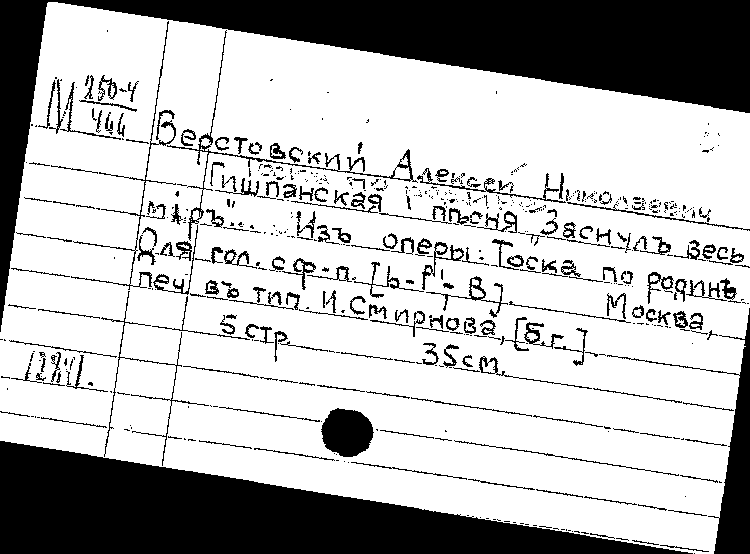 М 250-4
444
Верстовский Алексей Николаевич
Гишпанская пѣсня „Заснулъ весь
мiръ"... Изъ оперы: „Тоска по родинѣ.
Для гол. с ф-п. [b-f¹- B]. Москва,
печ. въ тип. И. Смирнова, [б.г.].
5 стр. 35 см.